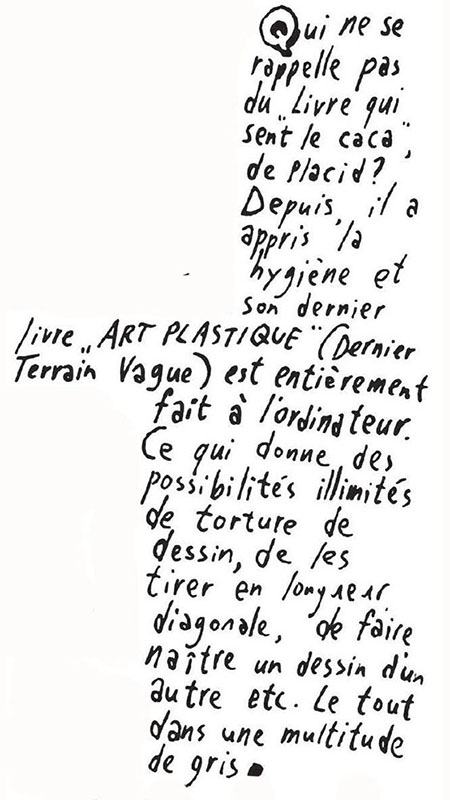 Qui ne se
rappelle pas
du „Livre qui
sent le caca",
de Placid?
Depuis, il a
appris la
hygiène et
son dernier
livre „ART PLASTIQUE" (Dernier
Terrain Vague) est entièrement
fait à l'ordinateur.
Ce qui donne des
possibilités illimités
de torture de
dessin, de les
tirer en longueur
diagonale, de faire
naître un dessin d'un
autre etc. Le tout
dans une multitude
de gris.